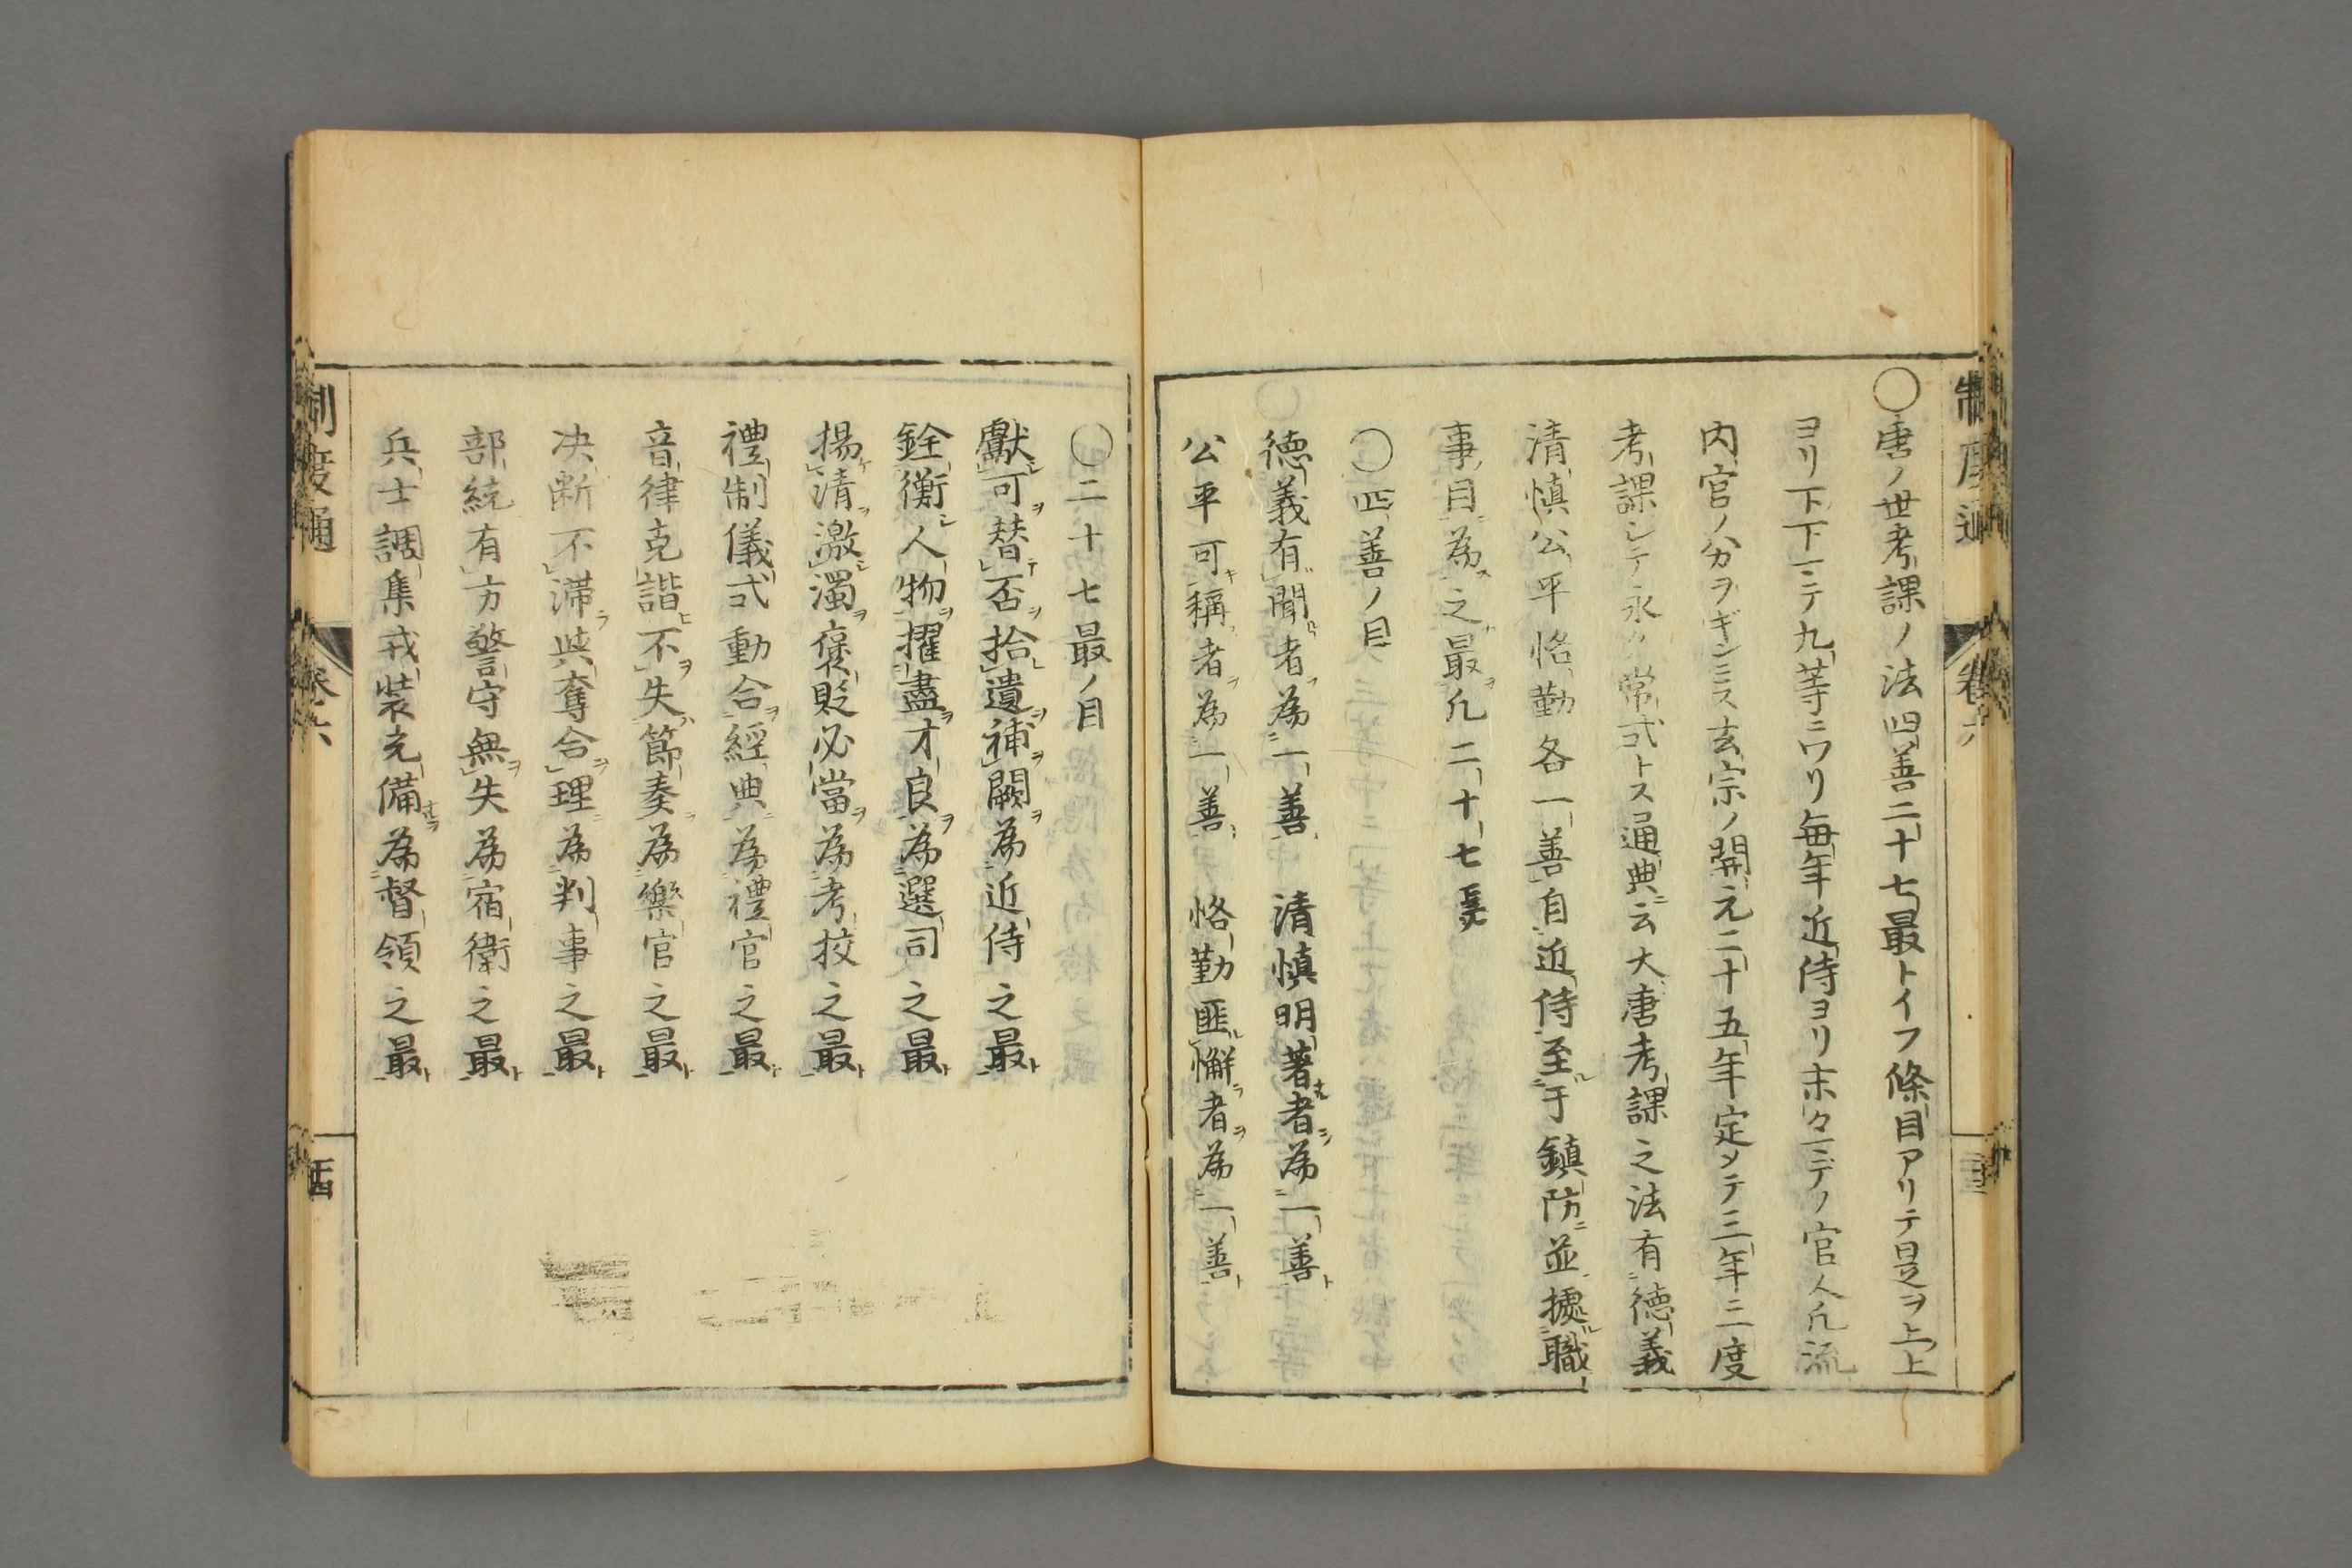 制度通 卷六
〇唐ノ世考課ノ法四善二十七最トイフ條目アリテ是ヲ上上
ヨリ下下ニテ九等ニワリ毎年近侍ヨリ末々ニデノ官人凡流
内官ノ分ヲギンミス玄宗ノ開元二十五年定メテ三年三度
考課シテ永ク常式トス通典ニ云大唐考課之法有德義
清慎公平恪勤各一善自近侍至于鎮防並據職
事目為之最凡二十七焉
〇四善ノ目
德義有聞者為一善 清慎明著者為一善
公平可稱者為一善 恪勤匪懈者為一善
〇二十七最ノ目
獻可替否拾遺補闕為近侍之最
銓衡人物擢盡才良為選司之最
揚清激濁褒貶必當為考挍之最
禮制儀式動合經典為禮官之最
音律克諧不失節奏為樂官之最
决断不滞與奪合理為判事之最
部統有方警守無失為宿衛之最
兵士調集戎装充備為督領之最
制度通 卷六